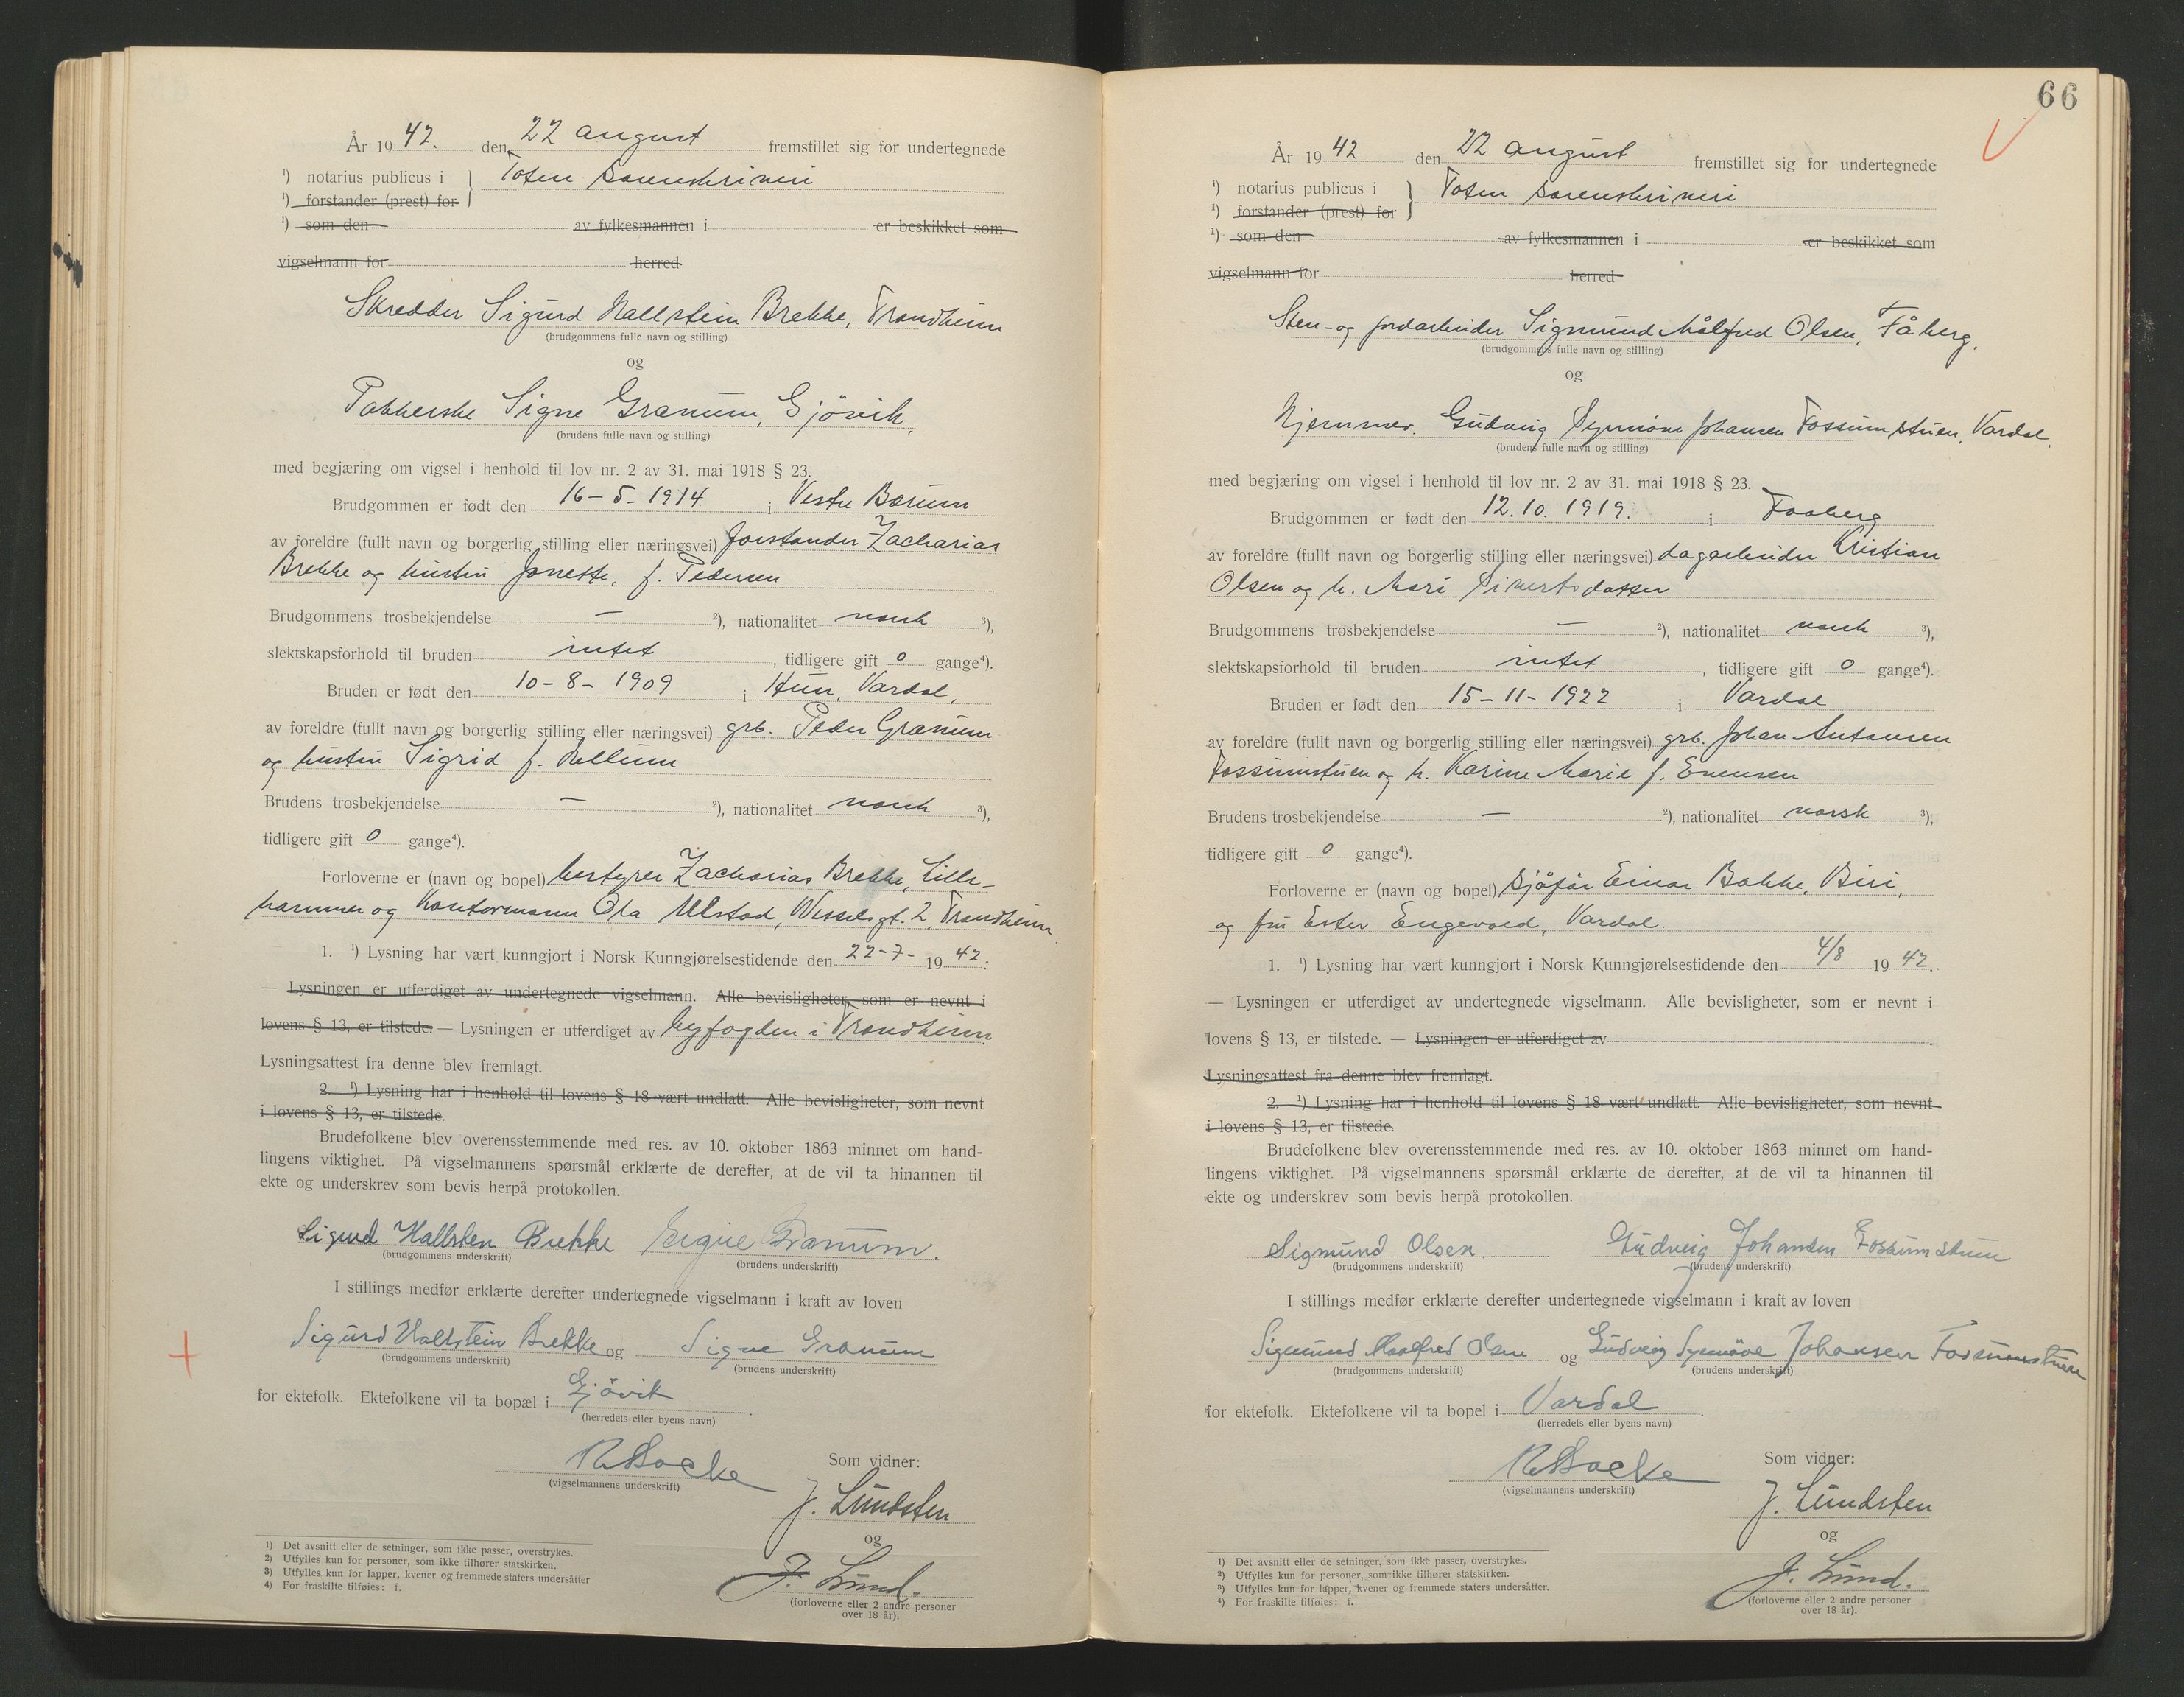 År 19 42. den 22 august fremstillet sig for undertegnede
¹) notarius publicus i } Toten sorenskriveri
¹) forstander (prest) for
¹) som den av fylkesmannen i er beskikket som
vigselmann for herred
Skredder Sigurd Hallstein Brekke, Trondheim
(brudgommens fulle navn og stilling)
og
Pakkerske Signe Granum, Gjövik,
(brudens fulle navn og stilling)
med begjæring om vigsel i henhold til lov nr. 2 av 31. mai 1918 § 23.
Brudgommen er født den 16-5-1914 i Vestre Bærum
av foreldre (fullt navn og borgerlig stilling eller næringsvei) forstander Zacharias
Brekke og hustru Jonette, f. Pedersen
Brudgommens trosbekjendelse — ²), nationalitet norsk ³),
slektskapsforhold til bruden intet , tidligere gift 0 gange⁴).
Bruden er født den 10-8-1909 i Hun, Vardal,
av foreldre (fullt navn og borgerlig stilling eller næringsvei) grb. Peder Granum
og hustru Sigrid f. Kollum
Brudens trosbekjendelse — ²), nationalitet norsk ³),
tidligere gift 0 gange⁴).
Forloverne er (navn og bopel) bestyrer Zacharias Brekke, Lille-
hammer og Kontormann Ola Ulstad, Wesselsgt. 2, Trondheim
1. ¹) Lysning har vært kunngjort i Norsk Kunngjørelsestidende den 22-7- 19 42.
— Lysningen er utferdiget av undertegnede vigselmann. Alle bevisligheter, som er nevnt i
lovens § 13, er tilstede. — Lysningen er utferdiget av byfogden i Trondheim.
Lysningsattest fra denne blev fremlagt.
2. ¹) Lysning har i henhold til lovens § 18 vært undlatt. Alle bevisligheter, som nevnt
i lovens § 13, er tilstede.
Brudefolkene blev overensstemmende med res. av 10. oktober 1863 minnet om hand-
lingens viktighet. På vigselmannens spørsmål erklærte de derefter, at de vil ta hinannen til
ekte og underskrev som bevis herpå protokollen.
Sigurd Hallsten Brekke Signe Granum.
(brudgommens underskrift) (brudens underskrift)
I stillings medfør erklærte derefter undertegnede vigselmann i kraft av loven
Sigurd Hallstein Brekke og Signe Granum
(brudgommens underskrift) (brudens underskrift)
for ektefolk. Ektefolkene vil ta bopæl i Gjövik.
(herredets eller byens navn)
(vigselmannens underskrift)
Som vidner:
J. Lundsten
og
J. Lund.
(forloverne eller 2 andre personer
over 18 år).
¹) Det avsnitt eller de setninger, som ikke passer, overstrykes.
²) Utfylles kun for personer, som ikke tilhører statskirken.
³) Utfylles kun for lapper, kvener og fremmede staters undersåtter
⁴) For fraskilte tilføies: f.
66
År 19 42 den 22 august fremstillet sig for undertegnede
¹) notarius publicus i } Toten sorenskriveri
¹) forstander (prest) for
¹) som den av fylkesmannen i er beskikket som
vigselmann for herred
Sten- og jordarbeider Sigmund Målfred Olsen, Fåberg.
(brudgommens fulle navn og stilling)
og
Hjemmev. Gudveig Synnöve Johansen Fossumstuen, Vardal.
(brudens fulle navn og stilling)
med begjæring om vigsel i henhold til lov nr. 2 av 31. mai 1918 § 23.
Brudgommen er født den 12.10.1919. i Faaberg
av foreldre (fullt navn og borgerlig stilling eller næringsvei) dagarbeider Kristian
Olsen og h. Mari Sivertsdatter
Brudgommens trosbekjendelse — ²), nationalitet norsk ³),
slektskapsforhold til bruden intet , tidligere gift 0 gange⁴).
Bruden er født den 15-11-1922 i Vardal
av foreldre (fullt navn og borgerlig stilling eller næringsvei) grb. Johan Antonsen
Fossumstuen og h. Karine Marie f. Evensen
Brudens trosbekjendelse — ²), nationalitet norsk ³),
tidligere gift 0 gange⁴).
Forloverne er (navn og bopel) sjåför Einar Bakke, Biri,
og fru Ester Engevold, Vardal.
1. ¹) Lysning har vært kunngjort i Norsk Kunngjørelsestidende den 4/8 19 42.
— Lysningen er utferdiget av undertegnede vigselmann. Alle bevisligheter, som er nevnt i
lovens § 13, er tilstede. — Lysningen er utferdiget av .
Lysningsattest fra denne blev fremlagt.
2. ¹) Lysning har i henhold til lovens § 18 vært undlatt. Alle bevisligheter, som nevnt
i lovens § 13, er tilstede.
Brudefolkene blev overensstemmende med res. av 10. oktober 1863 minnet om hand-
lingens viktighet. På vigselmannens spørsmål erklærte de derefter, at de vil ta hinannen til
ekte og underskrev som bevis herpå protokollen.
Sigmund Olsen. Gudveig Johansen Fossumstuen
(brudgommens underskrift) (brudens underskrift)
I stillings medfør erklærte derefter undertegnede vigselmann i kraft av loven
Sigmund Maalfred Olsen og Gudveig Synnöve Johansen Fossumstuen
(brudgommens underskrift) (brudens underskrift)
for ektefolk. Ektefolkene vil ta bopel i Vardal.
(herredets eller byens navn)
(vigselmannens underskrift)
Som vidner:
J. Lundsten
og
J. Lund.
(forloverne eller 2 andre personer
over 18 år).
¹) Det avsnitt eller de setninger, som ikke passer, overstrykes.
²) Utfylles kun for personer, som ikke tilhører statskirken.
³) Utfylles kun for lapper, kvener og fremmede staters undersåtter.
⁴) For fraskilte tilføies: f.